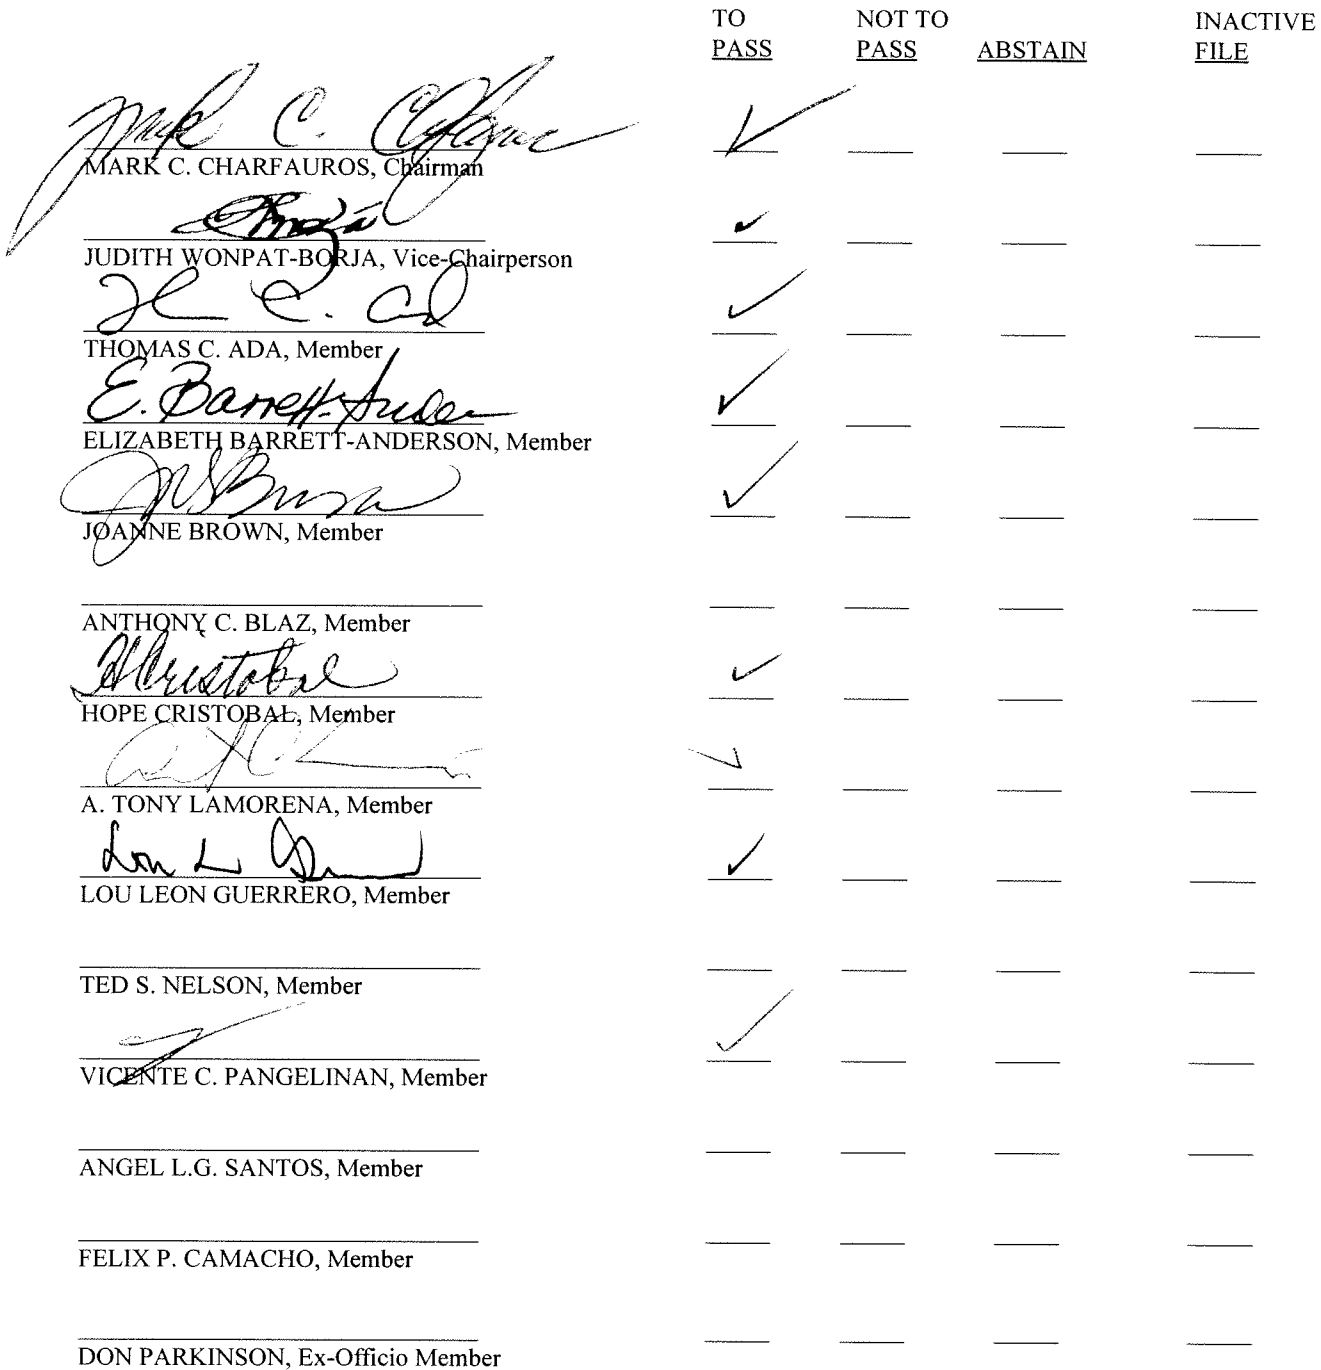 TO NOT TO INACTIVE
PASS PASS ABSTAIN FILE
Mark C. Charfauros
MARK C. CHARFAUROS, Chairman
JUDITH WONPAT-BORJA, Vice-Chairperson
THOMAS C. ADA, Member
E. Barrett-Anderson
ELIZABETH BARRETT-ANDERSON, Member
JOANNE BROWN, Member
ANTHONY C. BLAZ, Member
HCristobal
HOPE CRISTOBAL, Member
A. TONY LAMORENA, Member
LOU LEON GUERRERO, Member
TED S. NELSON, Member
VICENTE C. PANGELINAN, Member
ANGEL L.G. SANTOS, Member
FELIX P. CAMACHO, Member
DON PARKINSON, Ex-Officio Member